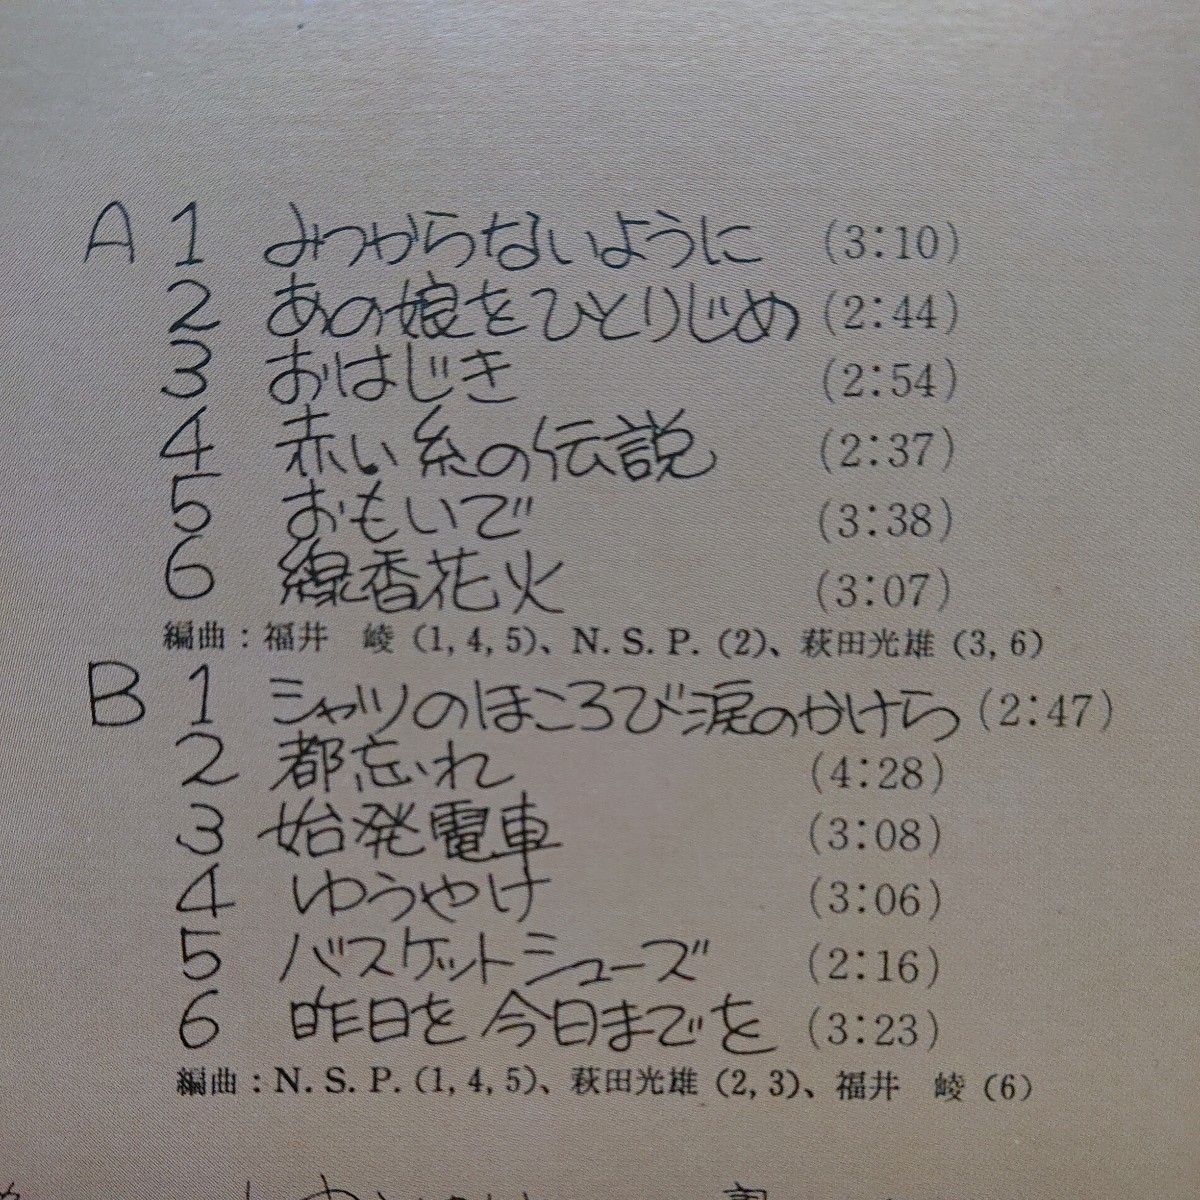 A 1 みつからないように (3:10)
2 あの娘をひとりじめ (2:44)
3 おはじき (2:54)
4 赤い糸の伝説 (2:37)
5 おもいで (3:38)
6 線香花火 (3:07)
編曲:福井 崚(1,4,5)、N.S.P.(2)、萩田光雄(3,6)
B 1 シャツのほころび涙のかけら (2:47)
2 都忘れ (4:28)
3 始発電車 (3:08)
4 ゆうやけ (3:06)
5 バスケットシューズ (2:16)
6 昨日を今日までを (3:23)
編曲:N.S.P.(1,4,5)、萩田光雄(2,3)、福井 崚(6)